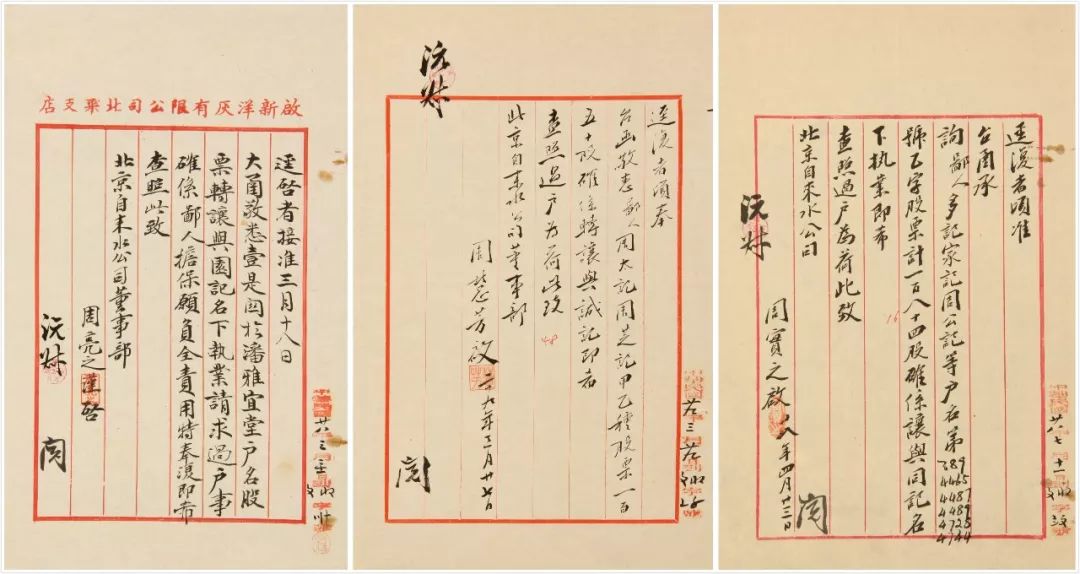 店支票北司公限有灰洋新啟
逕啓者接准三月十八日
大函敬悉壹是因於潘雅宜堂户名股
票轉讓與園記名下執業請求過户事
確係鄙人擔保願負全責用特奉復即希
查照此致
北京自来水公司董事部
周亮之謹啓
沅叔
閱
逕復者頃奉
台函敬悉鄙人周太記周芝記甲乙種股票一百
五十股確係轉讓與誠記即希
查照過户为荷此致
北京自来水公司董事部
周慧芳啟
沅叔
閱
48
逕復者頃准
台函承
詢鄙人多記家記周公記等户名第
789
4465
4487
4489
4728
4744
號乙字股票計一百八十四股確係讓與同記名
下執業即希
查照過户為荷此致
北京自来水公司
周實之啟 八年四月廿三日
沅叔
閱
16